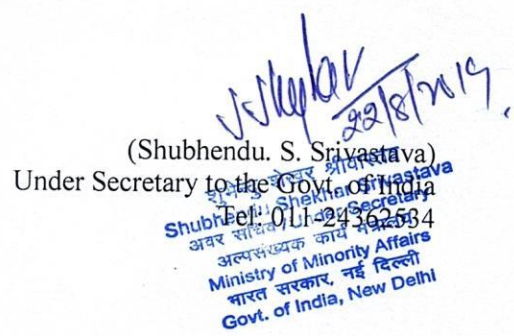 22/8/2019
(Shubhendu. S. Srivastava)
Under Secretary to the Govt. of India
Tel: 011-24362534
शुभेन्दु शेखर श्रीवास्तव
Shubhendu Shekhar Srivastava
अवर सचिव / Under Secretary
अल्पसंख्यक कार्य मंत्रालय
Ministry of Minority Affairs
भारत सरकार, नई दिल्ली
Govt. of India, New Delhi